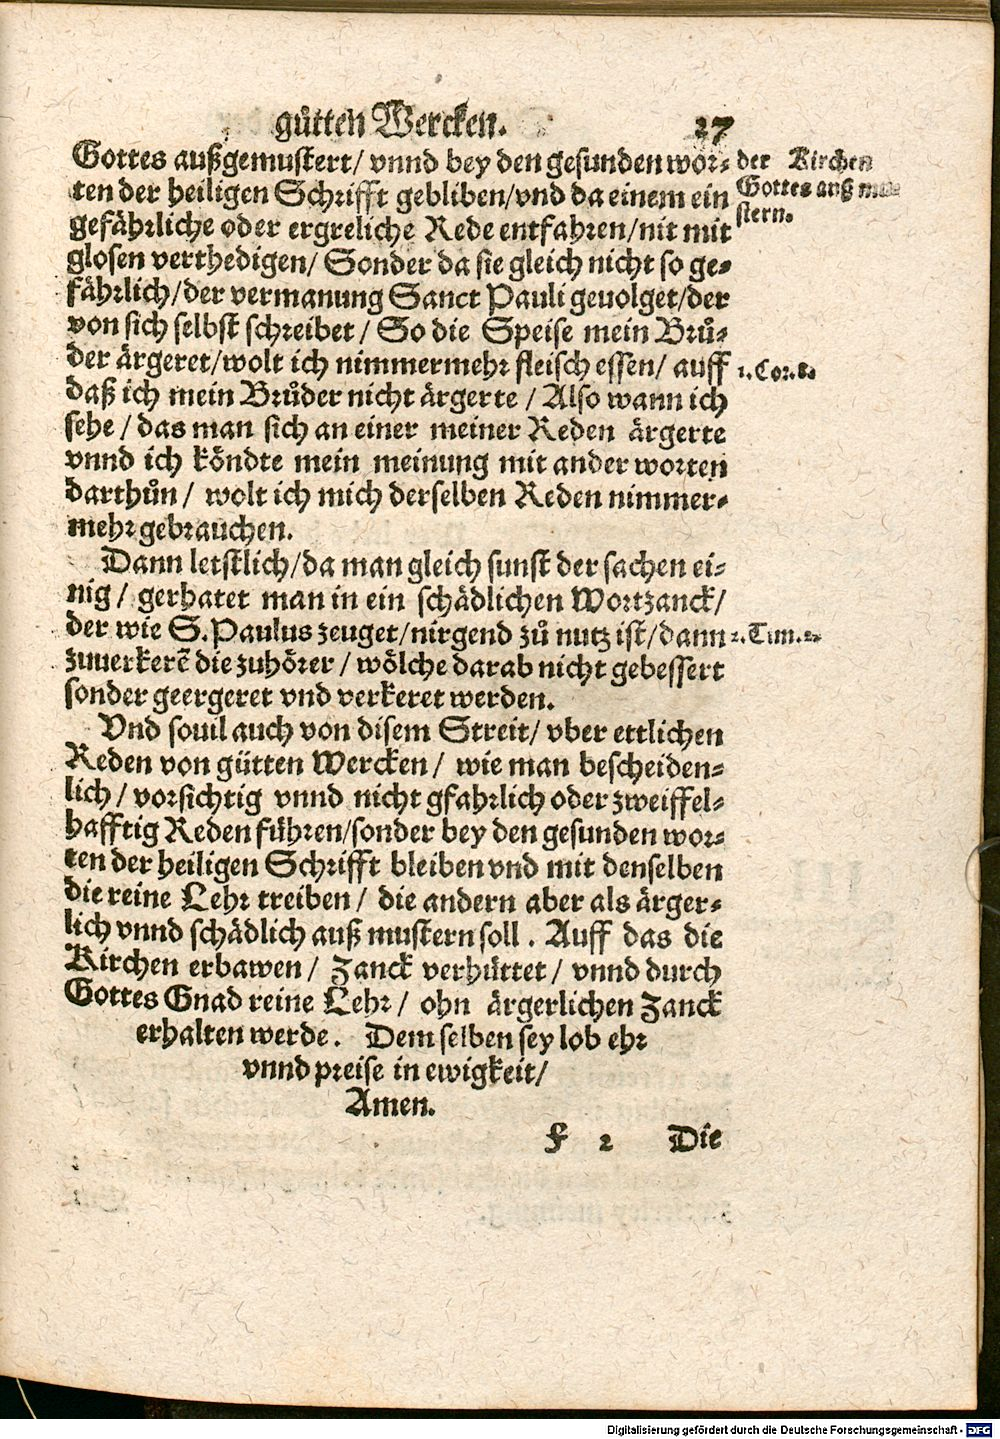 gůtten Wercken. 27
Gottes außgemustert/ vnnd bey den gesunden wor-
ten der heiligen Schrifft gebliben/vnd da einem ein
gefährliche oder ergreliche Rede entfahren/nit mit
glosen verthedigen/ Sonder da sie gleich nicht so ge-
fährlich/der vermanung Sanct Pauli geuolget/der
von sich selbst schreibet/ So die Speise mein Brů-
der ärgeret/wolt ich nimmermehr fleisch essen/ auff
daß ich mein Brůder nicht ärgerte/ Also wann ich
sehe/ das man sich an einer meiner Reden ärgerte
vnnd ich köndte mein meinung mit ander worten
darthůn/ wolt ich mich derselben Reden nimmer-
mehr gebrauchen.
Dann letstlich/da man gleich sunst der sachen ei-
nig/ gerhatet man in ein schädlichen Wortzanck/
der wie S. Paulus zeuget/nirgend zů nutz ist/dann
zuuerkerẽ die zuhörer/ wölche darab nicht gebessert
sonder geergeret vnd verkeret werden.
Vnd souil auch von disem Streit/ vber ettlichen
Reden von gůtten Wercken/ wie man bescheiden-
lich/ vorsichtig vnnd nicht gfahrlich oder zweiffel-
hafftig Reden führen/sonder bey den gesunden wor-
ten der heiligen Schrifft bleiben vnd mit denselben
die reine Lehr treiben/ die andern aber als ärger-
lich vnnd schädlich auß mustern soll. Auff das die
Kirchen erbawen/ Zanck verhüttet/ vnnd durch
Gottes Gnad reine Lehr/ ohn ärgerlichen Zanck
erhalten werde. Dem selben sey lob ehr
vnnd preise in ewigkeit/
Amen.
F 2 Die
der Kirchen
Gottes auß mu-
stern.
1. Cor. 8.
2. Tim. 2.
Digitalisierung gefördert durch die Deutsche Forschungsgemeinschaft - DFG